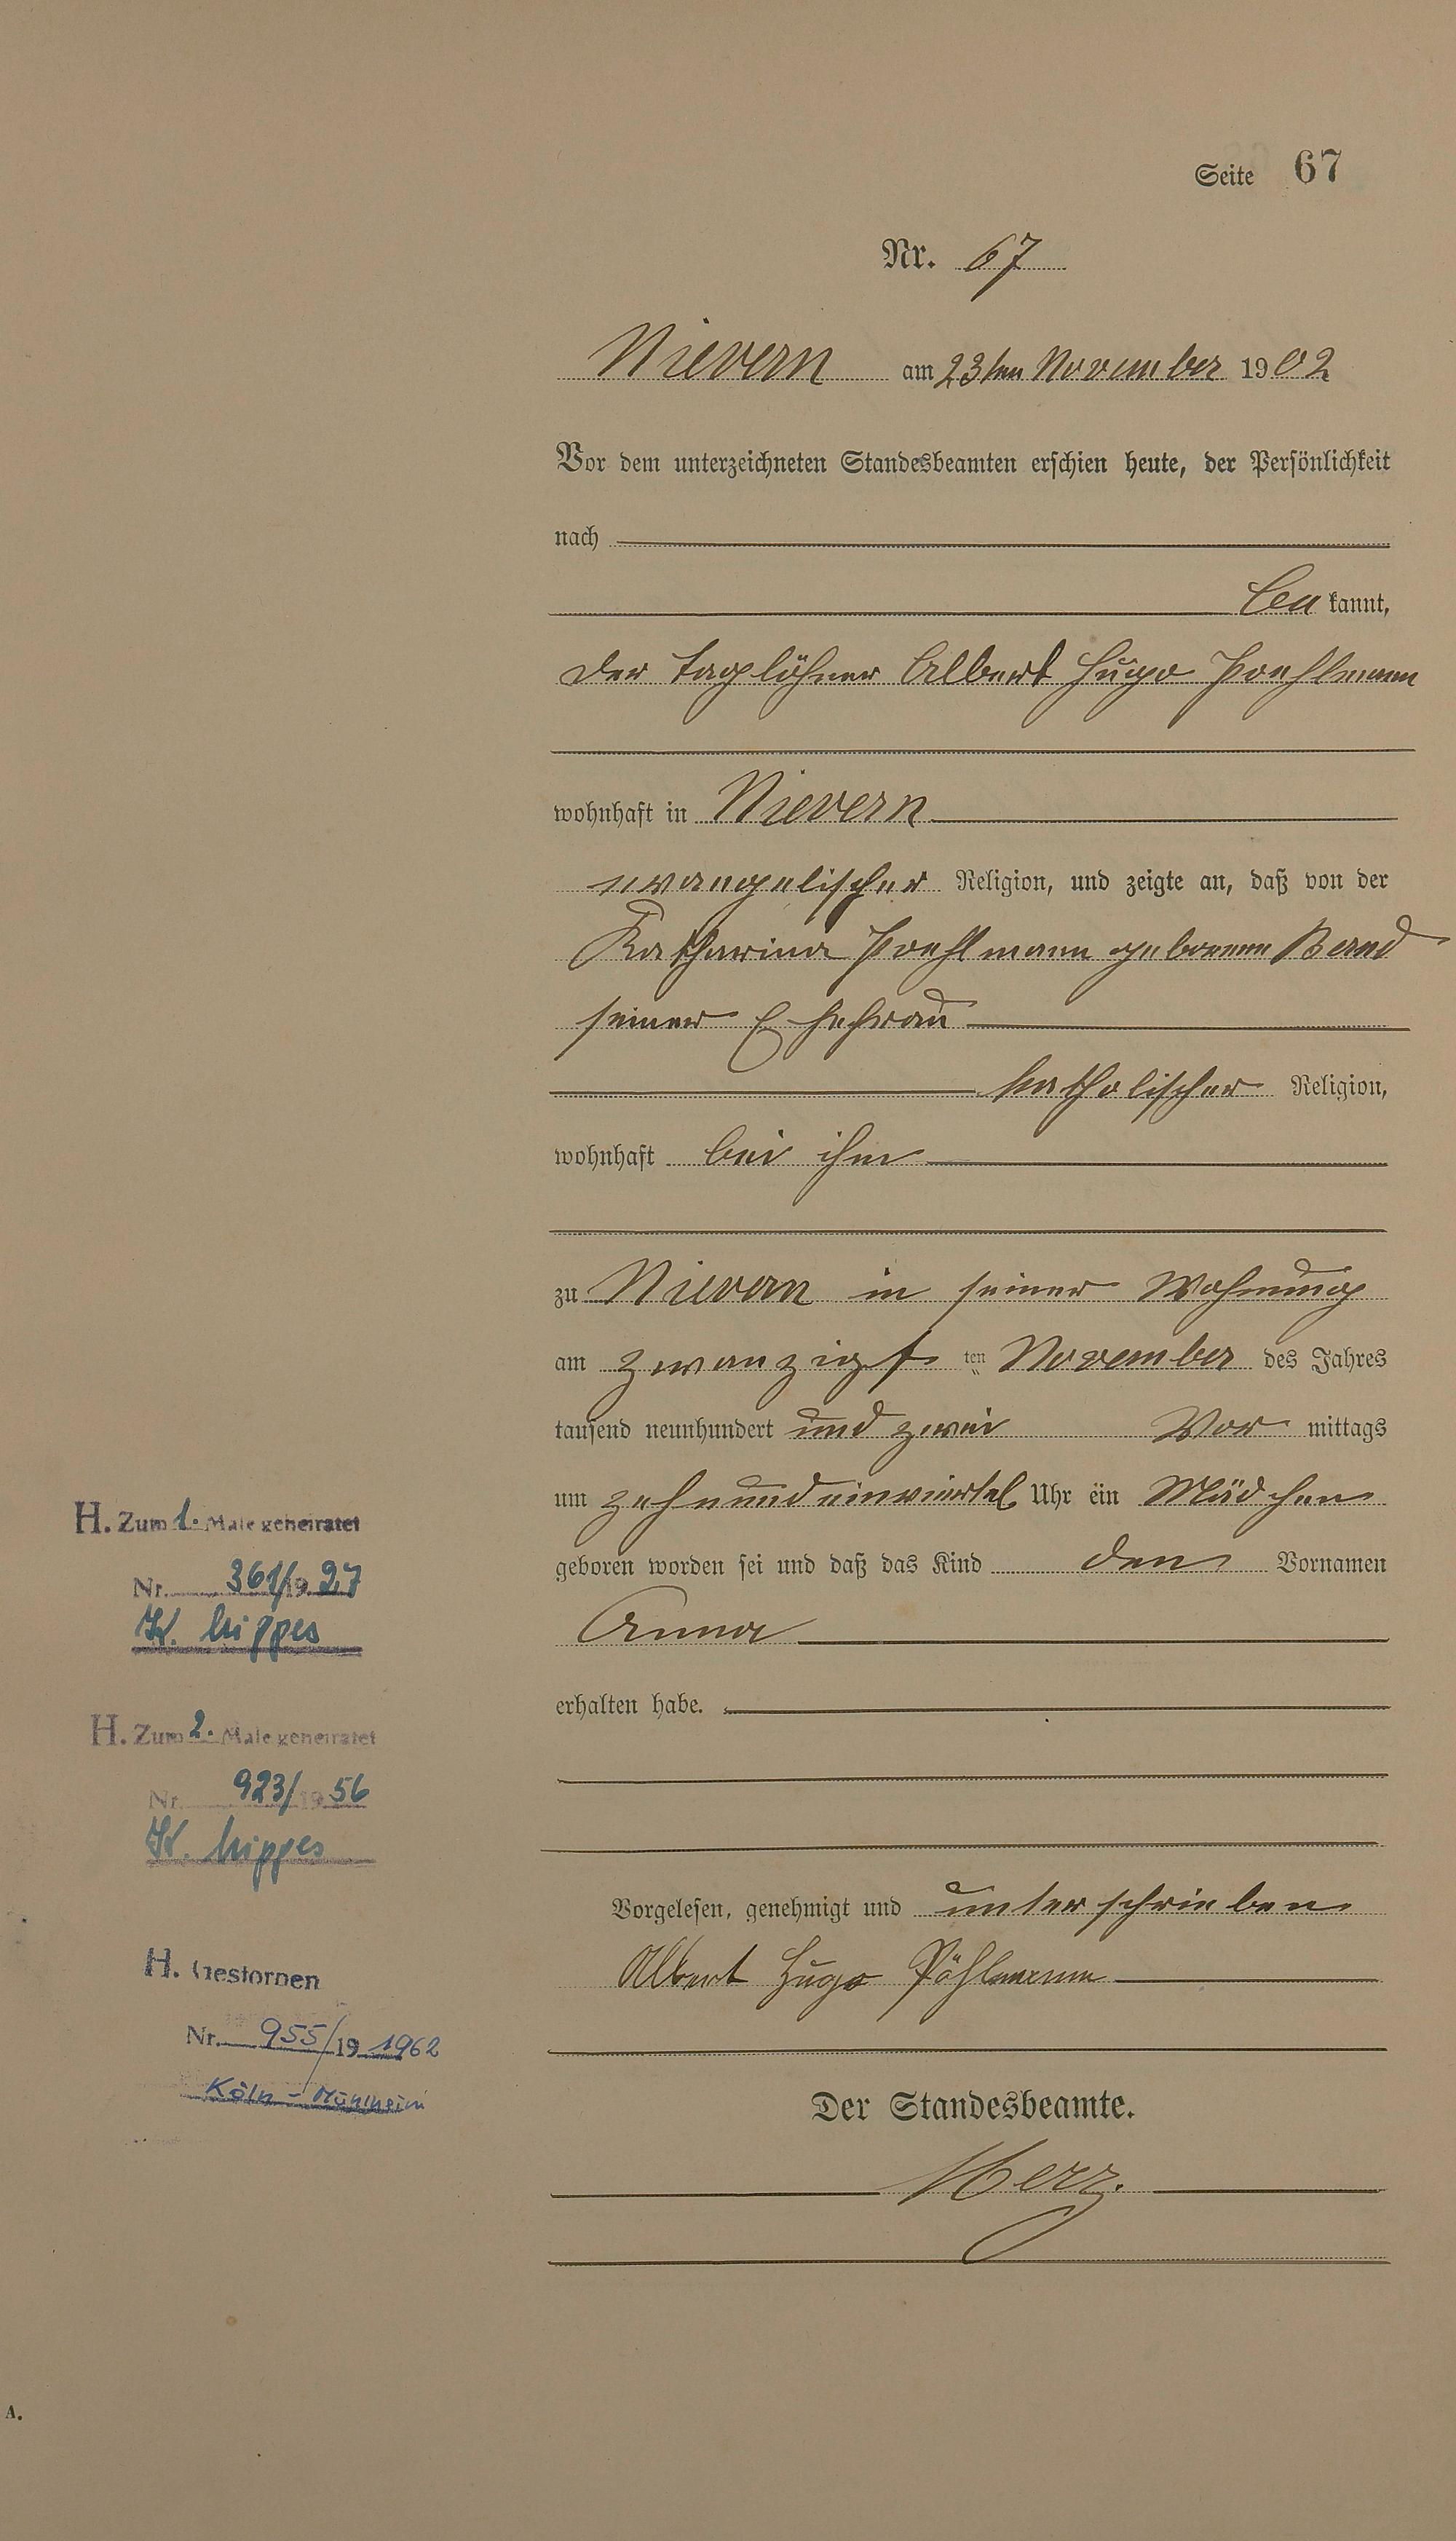 Seite 67
Nr. 67
Nievern am 23ten November 1902
Vor dem unterzeichneten Standesbeamten erschien heute, der Persönlichkeit
nach
be kannt,
der Taglöhner Albert Hugo Poehlmann
wohnhaft in Nievern
evangelischer Religion, und zeigte an, daß von der
Katharina Poehlmann geborenen Bernd
seiner Ehefrau
katholischer Religion,
wohnhaft bei ihm
zu Nievern in seiner Wohnung
am zwanzigs ten November des Jahres
tausend neunhundert und zwei Vor mittags
um zehnundeinviertel Uhr ein Mädchen
geboren worden sei und daß das Kind den Vornamen
Anna
erhalten habe.
Vorgelesen, genehmigt und unterschrieben
Albert Hugo Pöhlmann
Der Standesbeamte.
Merz.
H. Zum 1. Male geheiratet
Nr. 361/19 27
K. Nippes
H. Zum 2. Male geheiratet
Nr. 923/19 56
K. Nippes
H. Gestorben
Nr. 955/19 1962
Köln-Mühlheim
A.